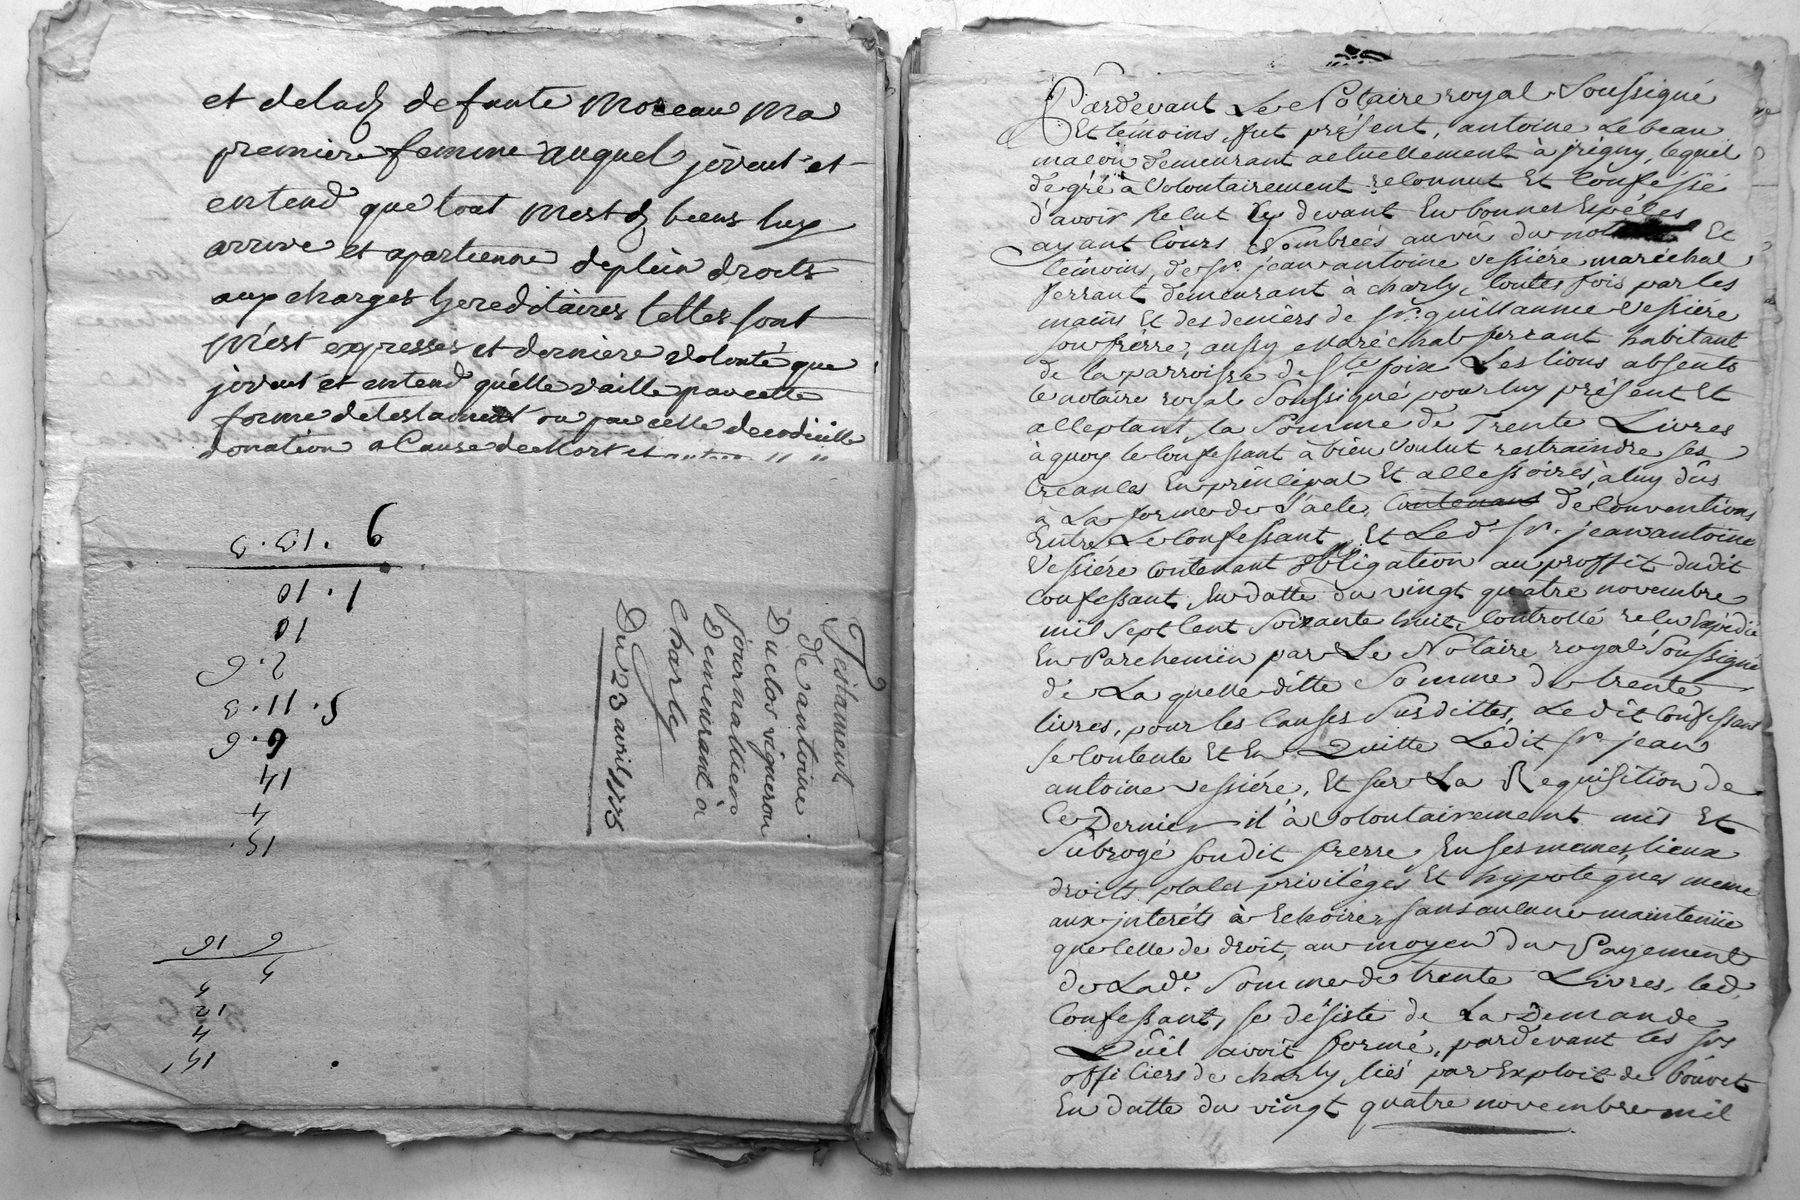 et delad defunte Moreau Ma
premiere femme auquel je veut et
entend que tout Mesd biens luy
arrive et apartienne de plein droits
aux charges hereditaires telles sont
M'est expresses et derniere volonté que
je veut et entend qu'elle vaille par cette
forme de testament ou par celle de codicille
donation a Cause de Mort et autre
9 . 13 . 3
1 . 10
10
2 . 6
5 . 11 . 3
6 . 6
14
4
15
6 16
4
5
12
4
14
Testament
de antoine
Duclos vigneron
journallier
Demeurant à
Charly
Du 23 avril 1775
Pardevant Le Notaire royal Soussigné
Et témoins, fut présent, antoine Lebeau
maçon demeurant actuellement à jrigny, lequel
de gré à volontairement reconnut Et Confessé
d'avoir Reçut Cy devant En bonnes Espéces
ayant Cours Nombreés au vû du Et
témoins, de Sr. jean antoine vessiére maréchal
ferrant demeurant à charly, toutes fois par les
mains Et des deniers de Sr. guillaume vessiére
son frerre, aussy maréchal ferrant habitant
de la parroisse de Ste foix Les Lions absents
le notaire royal Soussigné pour luy présent Et
acceptant, la Somme de Trente Livres
à quoy le Confessant à bien voulut restraindre ses
Creances En principal Et accessoires, à luy dûs
à La forme de L'acte Contenant de Conventions
Entre Le Confessant, Et Led. Sr. jean antoine
Vessiére Contenant obligation au proffit dudit
Confessant, En datte du vingt quatre novembre
mil Sept Cent Soixante huit, Controllé reçu Expédié
En Parchemin par Le Notaire royal Soussigné
de La quelle ditte Somme de trente
livres, pour les Causes Susdittes, Le dit Confessant
se Contente Et En Quitte Ledit Sr. jean
antoine vessiére, Et sur La Requisition de
Ce Dernier il à volontairement mis Et
Subrogé son dit frerre, En ses memes lieux
droits, places privilèges Et hypotéques meme
aux jnteréts à Echoire, sans aucune maintenüe
que celle de droit, au moyen du Payement
de Lade. Somme de trente Livres, led.
Confessant, se désiste de La Demande
Qu'il avoit formé, pardevant les Srs
officiers de charly, par Exploit de Bouvet
En datte du vingt quatre novembre mil